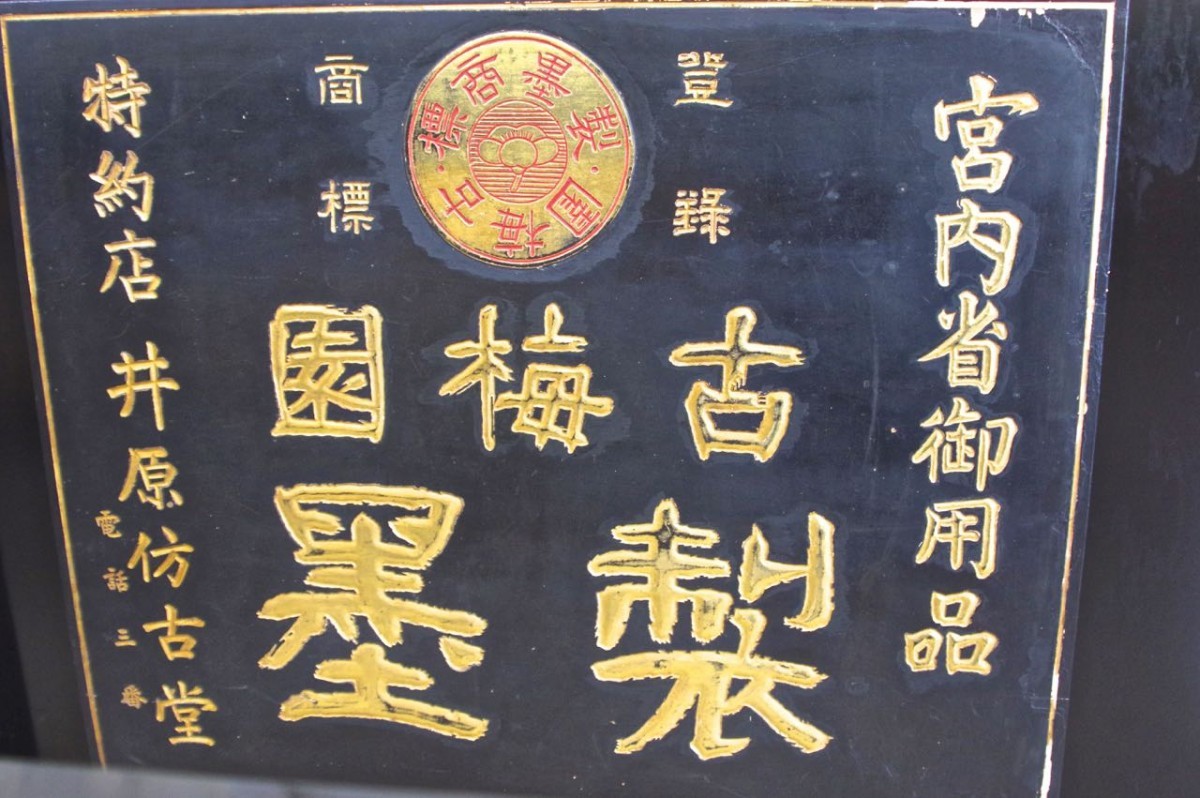 宮内省御用品
登録
商標
古梅園製墨商標
古梅園
製墨
特約店 井原仿古堂
電話三番